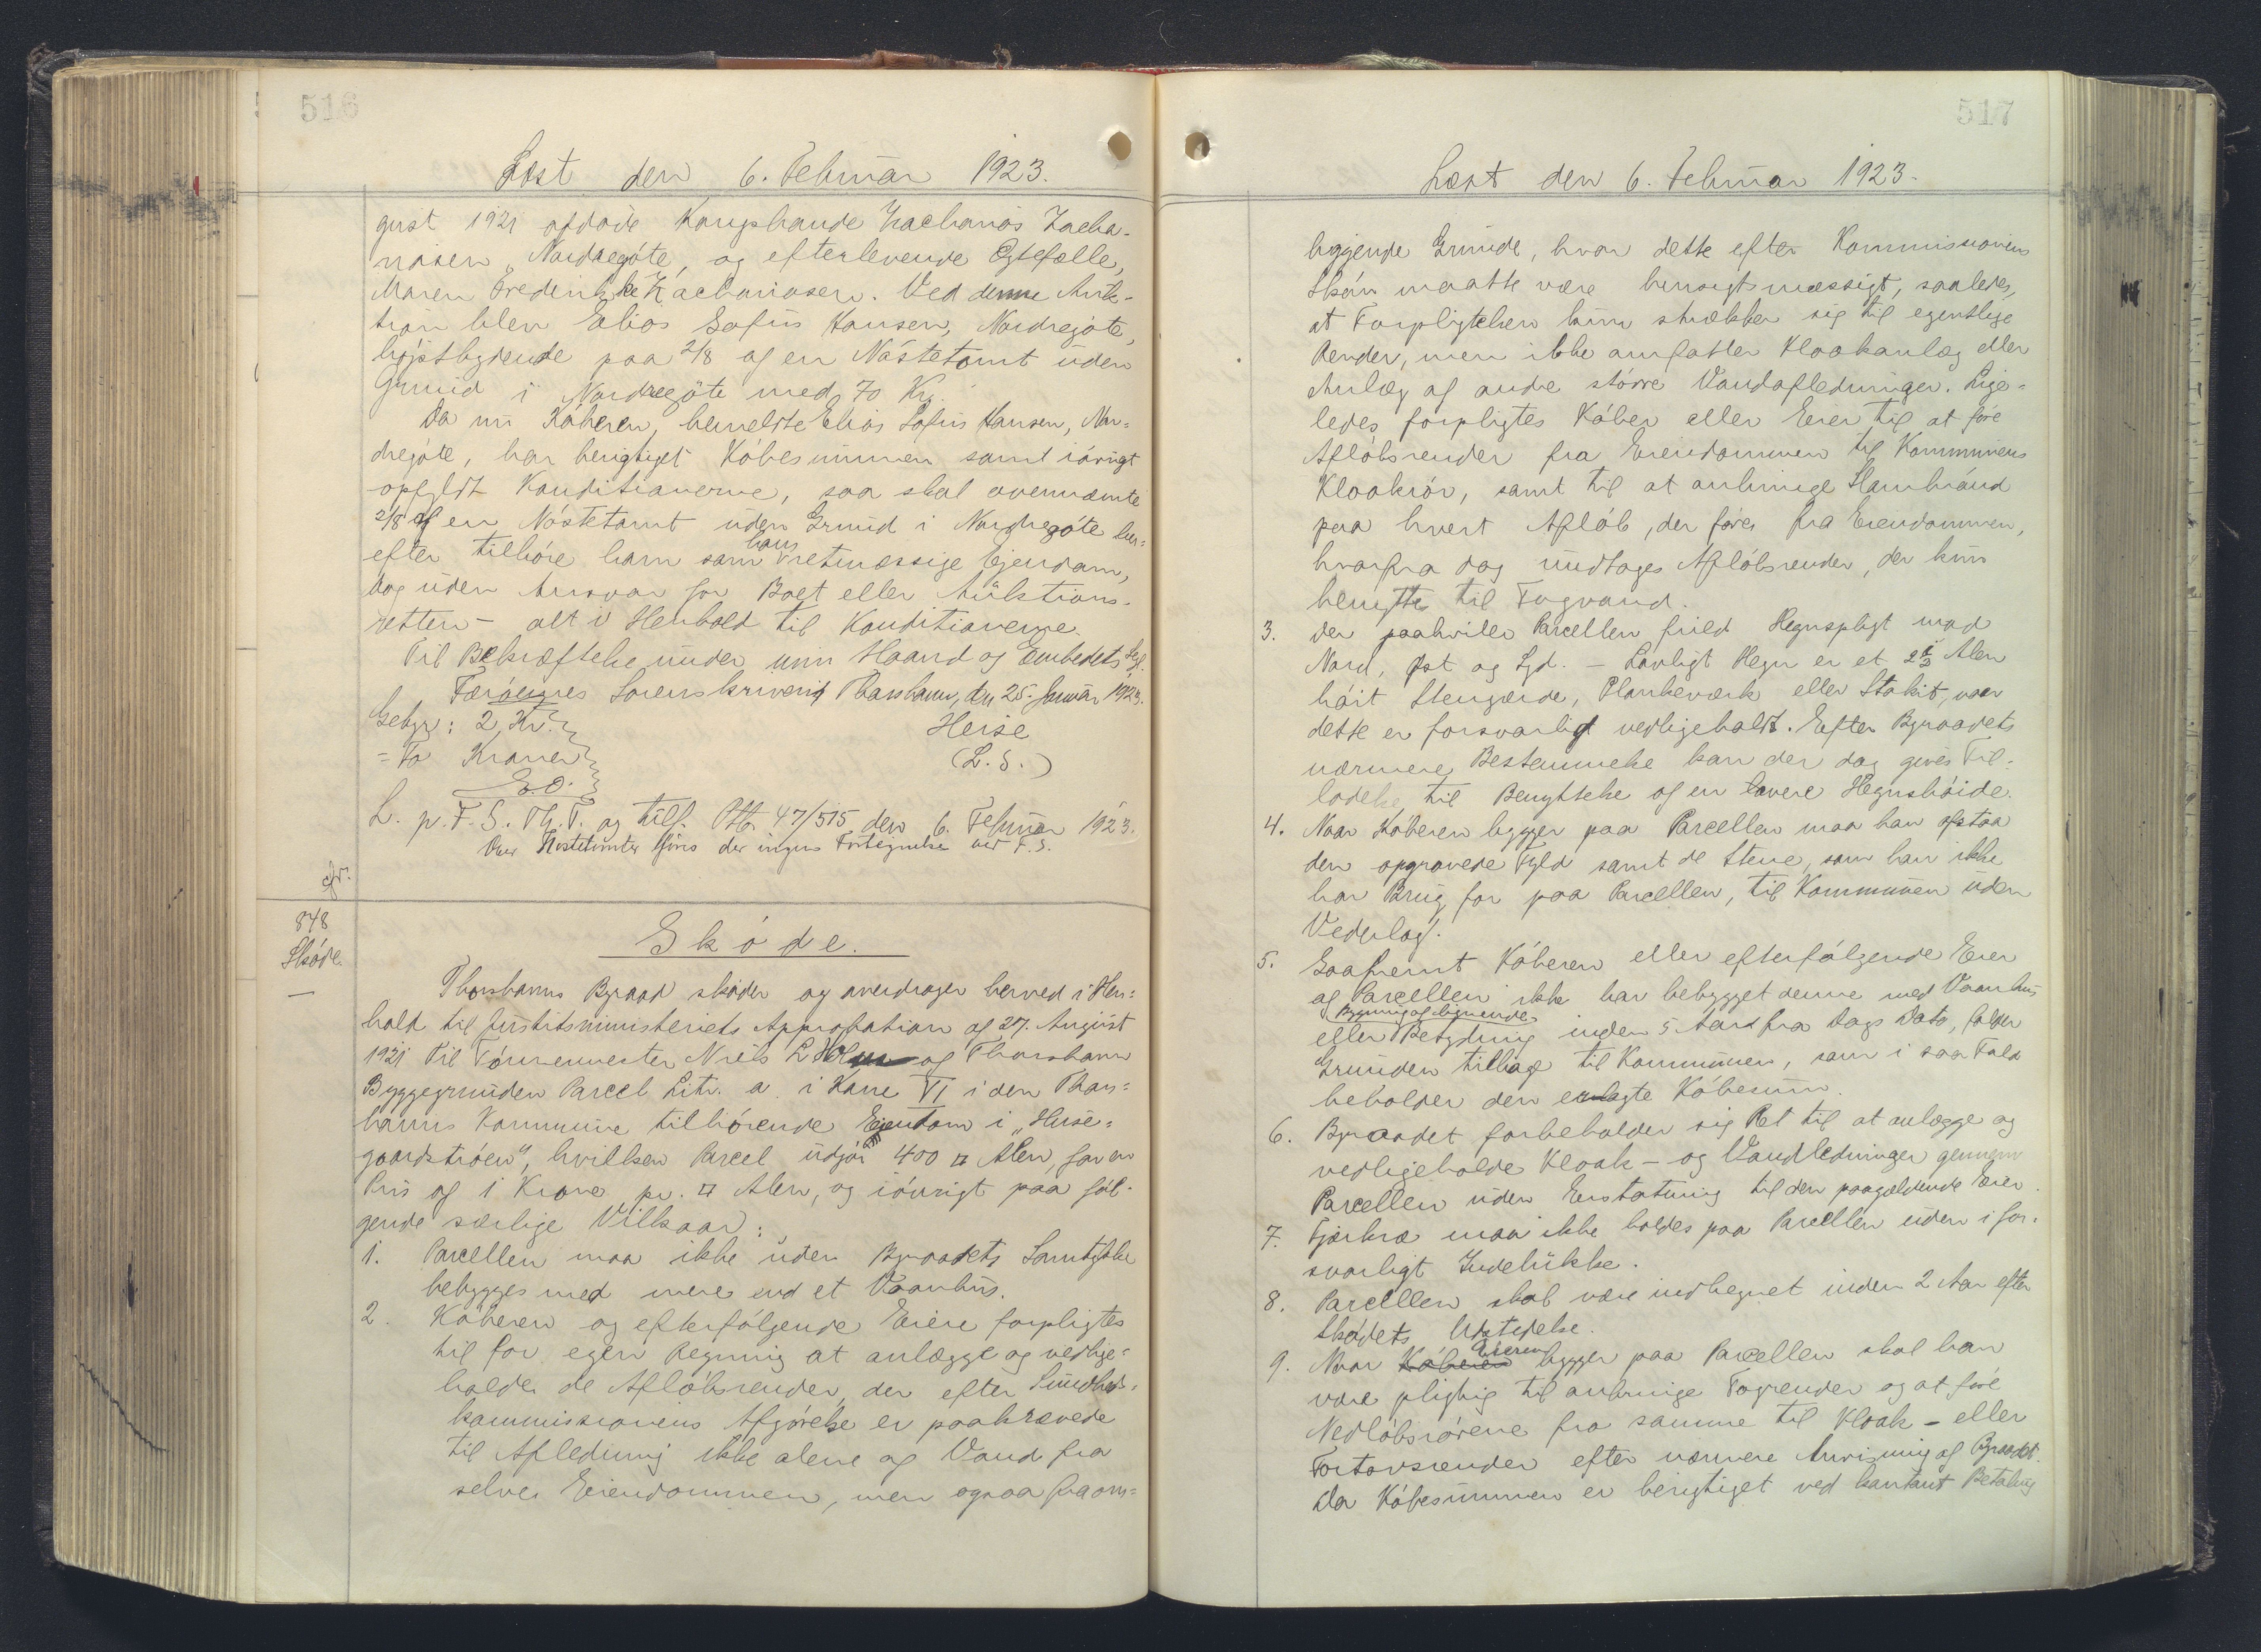 516
Læst den 6. Februar 1923.
gust 1921 afdøde Kongsbonde Zacharias Zacha-
riasen, Nordregøte, og efterlevende Ægtefælle,
Maren Frederikke Zachariasen. Ved denne Auk-
tion blev Elias Sofus Hansen, Nordregøte,
højstbydende paa 2/8 af en Nøstetomt uden
Grund i Nordregøte med 70 Kr.
Da nu Køberen, bemeldte Elias Sofus Hansen, Nor-
dregøte, har berigtiget Købesummen samt iøvrigt
opfyldt Konditionerne, saa skal ovennævnte
2/8 af en Nøstetomt uden Grund i Nordregøte her-
efter tilhøre ham som hans retmæssige Ejendom,
dog uden Ansvar for Boet eller Auktions-
retten – alt i Henhold til Konditionerne.
Til Bekræftelse under min Haand og Embedets Segl.
Færøernes Sorenskriveri, Thorshavn, den 25. Januar 1923.
Gebyr: 2 Kr.
Heise
= To Kroner
(L.S.)
E.O.
L. p. F. S. Th. T. og tilf. Ptb. 47/515 den 6. Februar 1923.
Over Nøstetomter føres der ingen Fortegnelse ved F.S.
cfr.
848
Skøde
—
Skøde.
Thorshavns Byraad skøder og overdrager herved i Hen-
hold til Justitsministeriets Approbation af 27. August
1921 til Tømremester Niels L Holm af Thorshavn
Byggegrunden Parcel Litr. a. i Karre VI i den Thors-
havns Kommune tilhørende Ejendom i "Huse-
gaardstrøen", hvilken Parcel udgør 400 □ Alen, for en
Pris af 1 Krone pr. □ Alen, og iøvrigt paa føl-
gende særlige Vilkaar:
1. Parcellen maa ikke uden Byraadets Samtykke
bebygges med mere end et Vaanhus.
2. Køberen og efterfølgende Eiere forpligtes
til for egen Regning at anlægge og vedlige-
holde de Afløbsrender, der efter Sundheds-
kommissionens Afgørelse er paakrævede
til Afledning ikke alene af Vand fra
selve Eiendommen, men ogsaa fra om-
517
Læst den 6. Februar 1923.
liggende Grunde, hvor dette efter Kommissionens
Skøn maatte være hensigtsmæssigt, saaledes,
at Forpligtelsen kun strækker sig til egentlige
Render, men ikke omfatter Kloakanlæg eller
Anlæg af andre større Vandafledninger. Lige-
ledes forpligtes Køber eller Eier til at føre
Afløbsrender fra Eiendommen til Kommunens
Kloakrør, samt til at anbringe Slambrønd
paa hvert Afløb, der føres fra Eiendommen,
hvorfra dog undtages Afløbsrender, der kun
benyttes til Tagvand.
3. Der paahviler Parcellen fuld Hegnspligt mod
Nord, Øst og Syd. – Lovligt Hegn er et 2 1/3 Alen
høit Stengærde, Plankeværk eller Stakit, naar
dette er forsvarligt vedligeholdt. Efter Byraadets
nærmere Bestemmelse kan der dog gives Til-
ladelse til Benyttelse af en lavere Hegnshøide.
4. Naar Køberen bygger paa Parcellen maa han afstaa
den opgravede Fyld samt de Stene, som han ikke
har Brug for paa Parcellen, til Kommunen uden
Vederlag.
5. Saafremt Køberen eller efterfølgende Eier
af Parcellen ikke har bebygget denne med Vaanhus
eller Bygning af lignende Betydning inden 5 Aar fra Dags Dato, falder
Grunden tilbage til Kommunen, som i saa Fald
beholder den erlagte Købesum.
6. Byraadet forbeholder sig Ret til at anlægge og
vedligeholde Kloak- og Vandledninger gennem
Parcellen uden Erstatning til den paagældende Eier.
7. Fjerkræ maa ikke holdes paa Parcellen uden i for-
svarligt Indelukke.
8. Parcellen skal være indhegnet inden 2 Aar efter
Skødets Udstedelse.
9. Naar Køberen Eieren bygger paa Parcellen skal han
være pligtig til anbringe Tagrender og at føre
Nedløbsrørene fra samme til Kloak- eller
Fortovsrender efter nærmere Anvisning af Byraadet.
Da Købesummen er berigtiget ved kontant Betaling